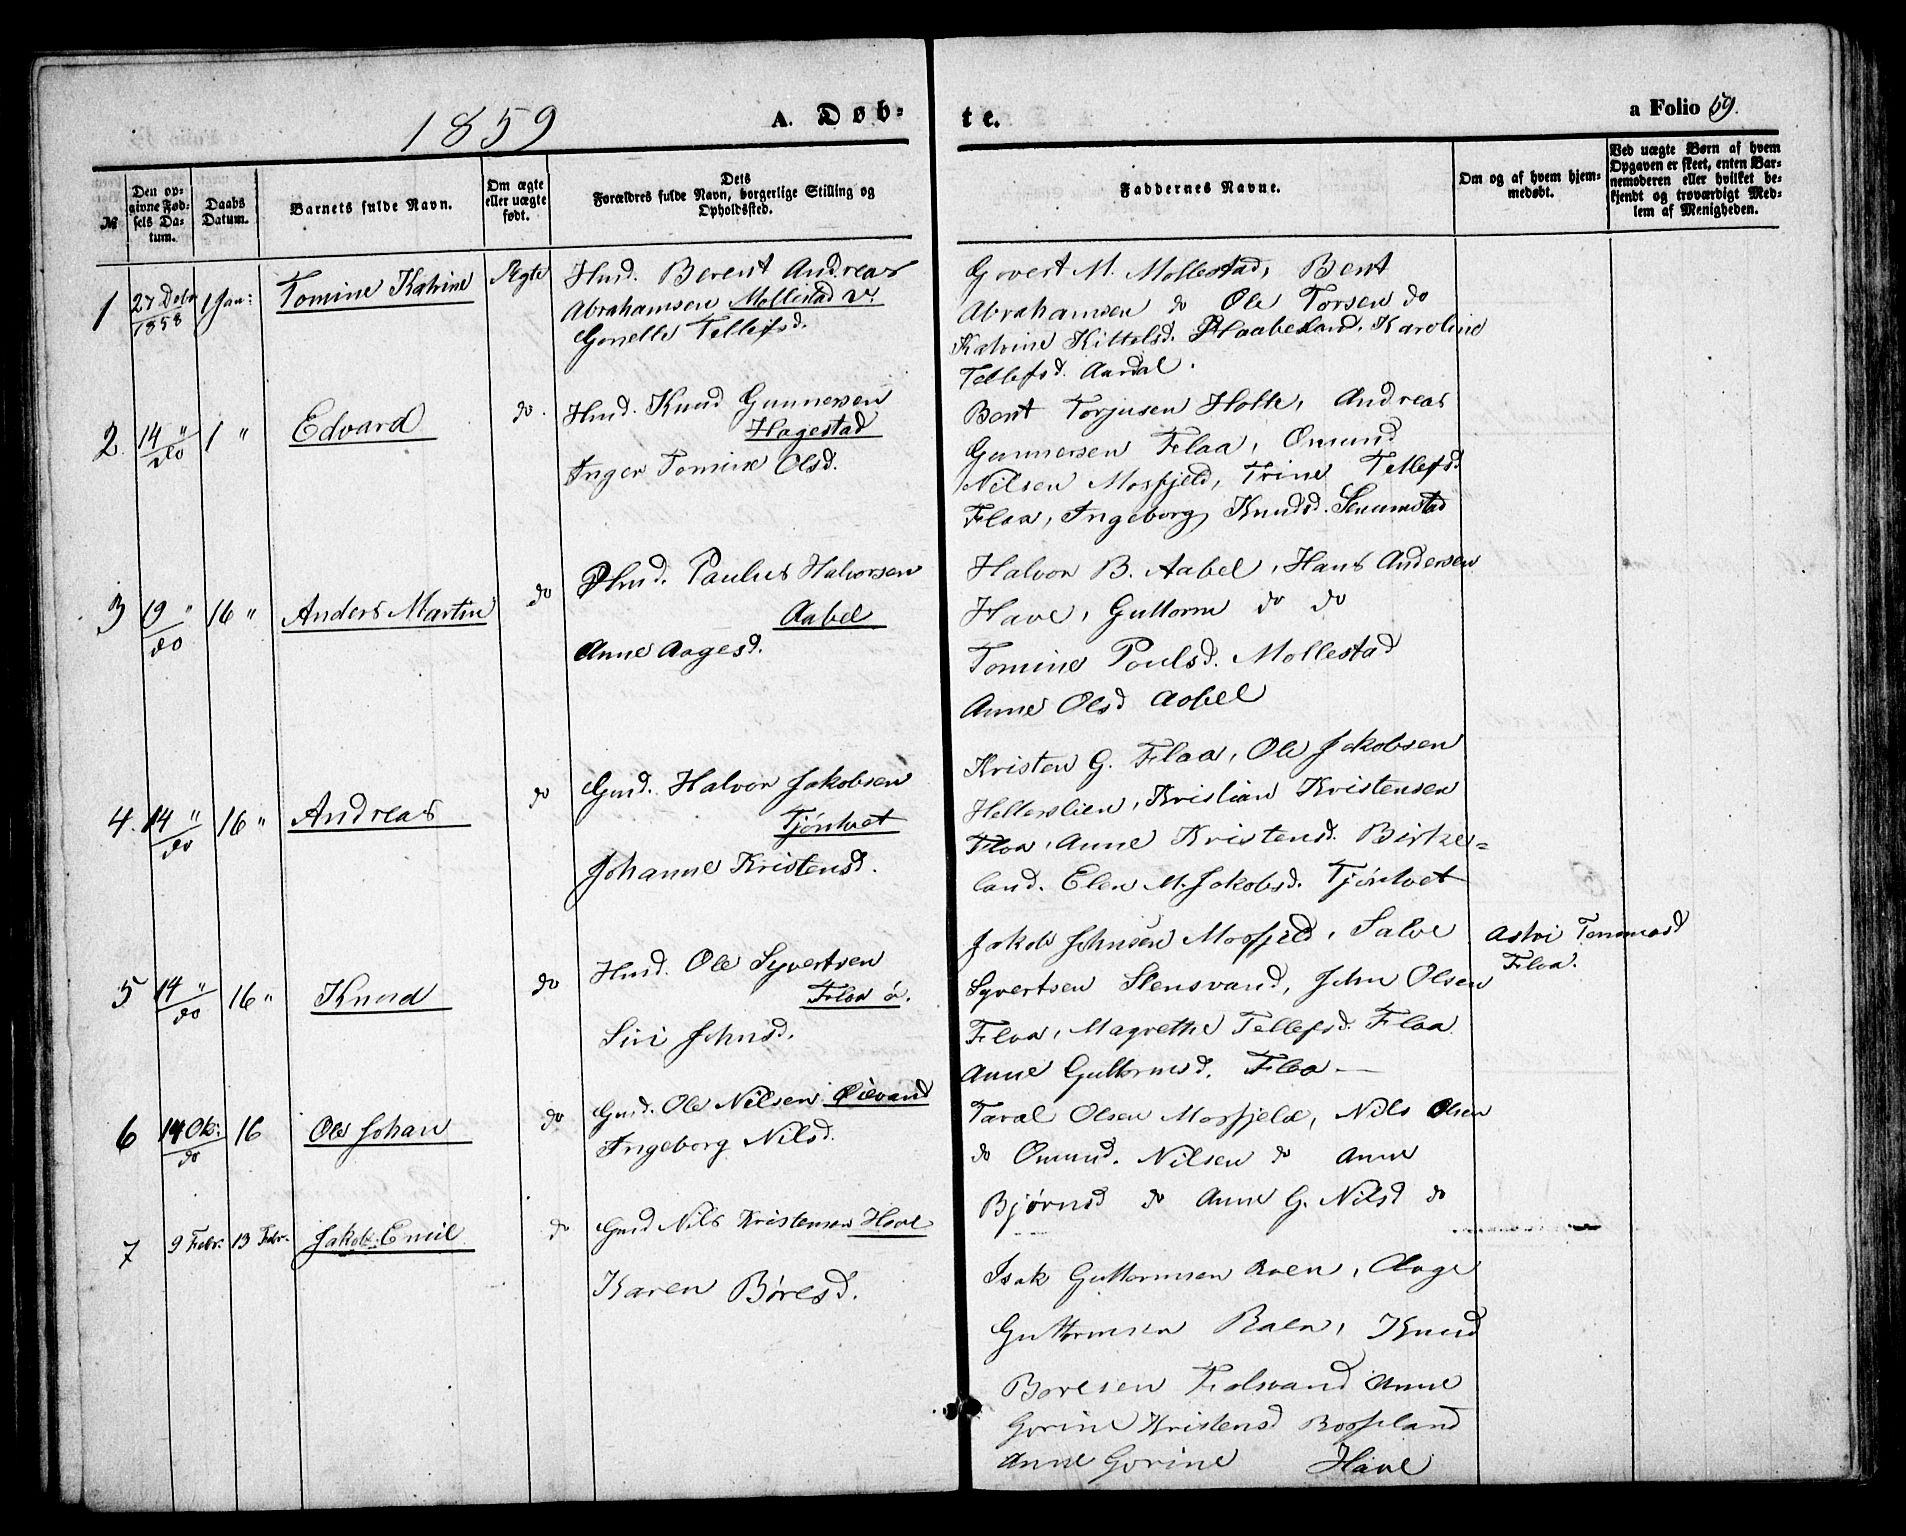 1859
A. Døb-
te.
a Folio 59.
№
Den op-
givne Fød-
sels Da-
tum.
Daabs
Datum.
Barnets fulde Navn.
Om ægte
eller uægte
født.
Dets
Forældres fulde Navn, borgerlige Stilling og
Opholdssted.
Faddernes Navne.
Om og af hvem hjem-
medøbt.
Ved uægte Børn af hvem
Opgaven er skeet, enten Bar-
nemoderen eller hvilket be-
kjendt og troværdigt Med-
lem af Menigheden.
1 27 Decbr 1858 1 Jan: Tomine Katrine Ægte
Husd. Berent Andreas
Abrahamsen Mollestad
Gonelle Tellefsd.
Govert M. Mollestad, Bent
Abrahamsen do Ole Torsen do
Katrine Kittelsd. Haabesland, Karoline
Tellefsd. Aardal.
2. 14 " do 1 " Edvard do.
Husd. Knud Gunnersen
Hagestad
Inger Tomine Olsd.
Bent Torjusen Holte, Andreas
Gunnersen Flaa, Omund
Nilsen Mosfjeld, Trine Tellefsd
Flaa, Ingeborg Knudsd. Senumstad
3 19 " do 16 " Anders Martin do
Phusd. Paulus Halvorsen
Aabel
Anne Aagesd.
Halvor B. Aabel, Hans Andersen
Have, Guttorm do do
Tomine Poulsd. Mollestad
Anne Olsd Aabel
4. 14 " do 16 " Andreas do
Gmd. Halvor Jakobsen
Tjöntvet
Johanne Kristensd.
Kristen G. Flaa, Ole Jakobsen
Hellerslien, Kristian Kristensen
Flaa, Anne Kristensd. Birke=
land. Elen M. Jakobsd. Tjöntvet
5 14 " do 16 " Knud do
Husd. Ole Syvertsen
Flaa ö.
Siri Johnsd.
Jakob Johnsen Mosfjeld, Salve
Syvertsen Stensvand, John Olsen
Flaa, Magrethe Tellefsd. Flaa
Anne Guttormsd. Flaa —
Flaa.
6 14 Ok: do 16 Ole Johan do
Gmd. Ole Nilsen Öievand
Ingeborg Nilsd.
Taral Olsen Mosfjeld, Nils Olsen
do Omund. Nilsen do Anne
Bjørnsd do Anne G. Nilsd do
7 9 Febr. 13 Febr. Jakob Emil do
Gmd Nils Kristensen Have
Karen Børesd.
Isak Guttormsen Roen, Aage
Guttormsen Raen, Knud
Boresen Fidsvand Anne
Gorine Kristensd Bosseland
Anne Gorine Have